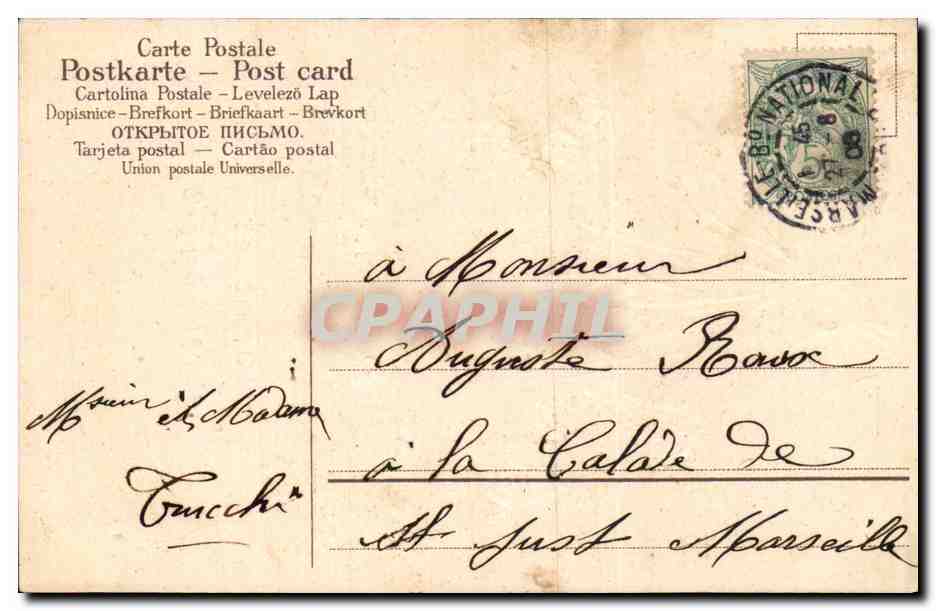 Carte Postale
Postkarte — Post card
Cartolina Postale – Levelező Lap
Dopisnice – Brefkort – Briefkaart – Brevkort
ОТКРЫТОЕ ПИСЬМО.
Tarjeta postal — Cartão postal
Union postale Universelle.
MARSEILLE Bd NATIONAL
45
27 - 8
08
5
à Monsieur
CPAPHIL
Auguste Roux
Msieur et Madame
à la Calade de
Tucchi
St Just Marseille